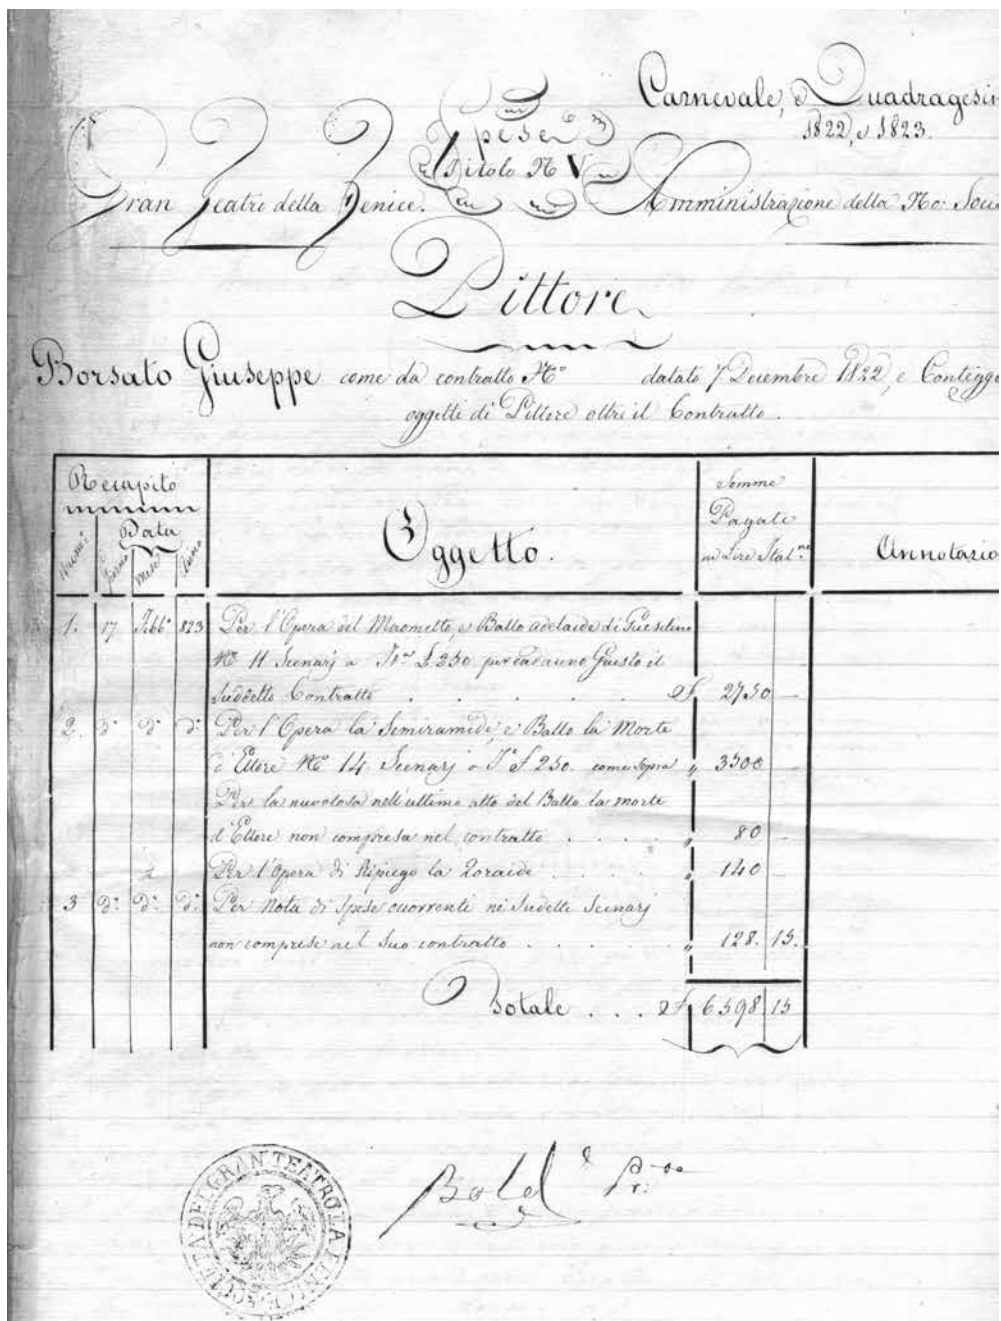 Carnevale, e Quadragesim
1822, e 1823.
Spese
Titolo No V
Gran Teatro della Fenice.
Amministrazione della No. Soci
Pittore
Borsato Giuseppe come da contratto No datato 7 Decembre 1822, e Conteggi
oggetti di Pittore oltre il Contratto.
Recapito
Data
Numeri
Giorno
Mese
Anno
Oggetto.
Somme
Pagate
in Lire Ital.ne
Annotazio
1. 17 Febb.o 823 Per l'Opera del Maometto, e Ballo Adelaide di Guesclino
No 11 Scenarj a It.e £ 250 per cadauno Giusto il
suddetto Contratto £ 2750 —
2. d.o d.o d.o Per l'Opera la Semiramide, e Ballo la Morte
d'Ettore No 14 Scenarj a I.e £ 250. come sopra " 3500
Per la nuvolosa nell'ultimo atto del Ballo la morte
d'Ettore non compresa nel contratto . . . . . " 80 —
Per l'Opera di Ripiego la Zoraide . . . . " 140 —
3 d.o d.o d.o Per Nota di Spese occorrenti ne' sudetti Scenarj
non comprese nel suo contratto . . . . . " 128. 15.
Totale . . . £ 6598 15
SOCIETÀ DEL GRAN TEATRO LA FENICE